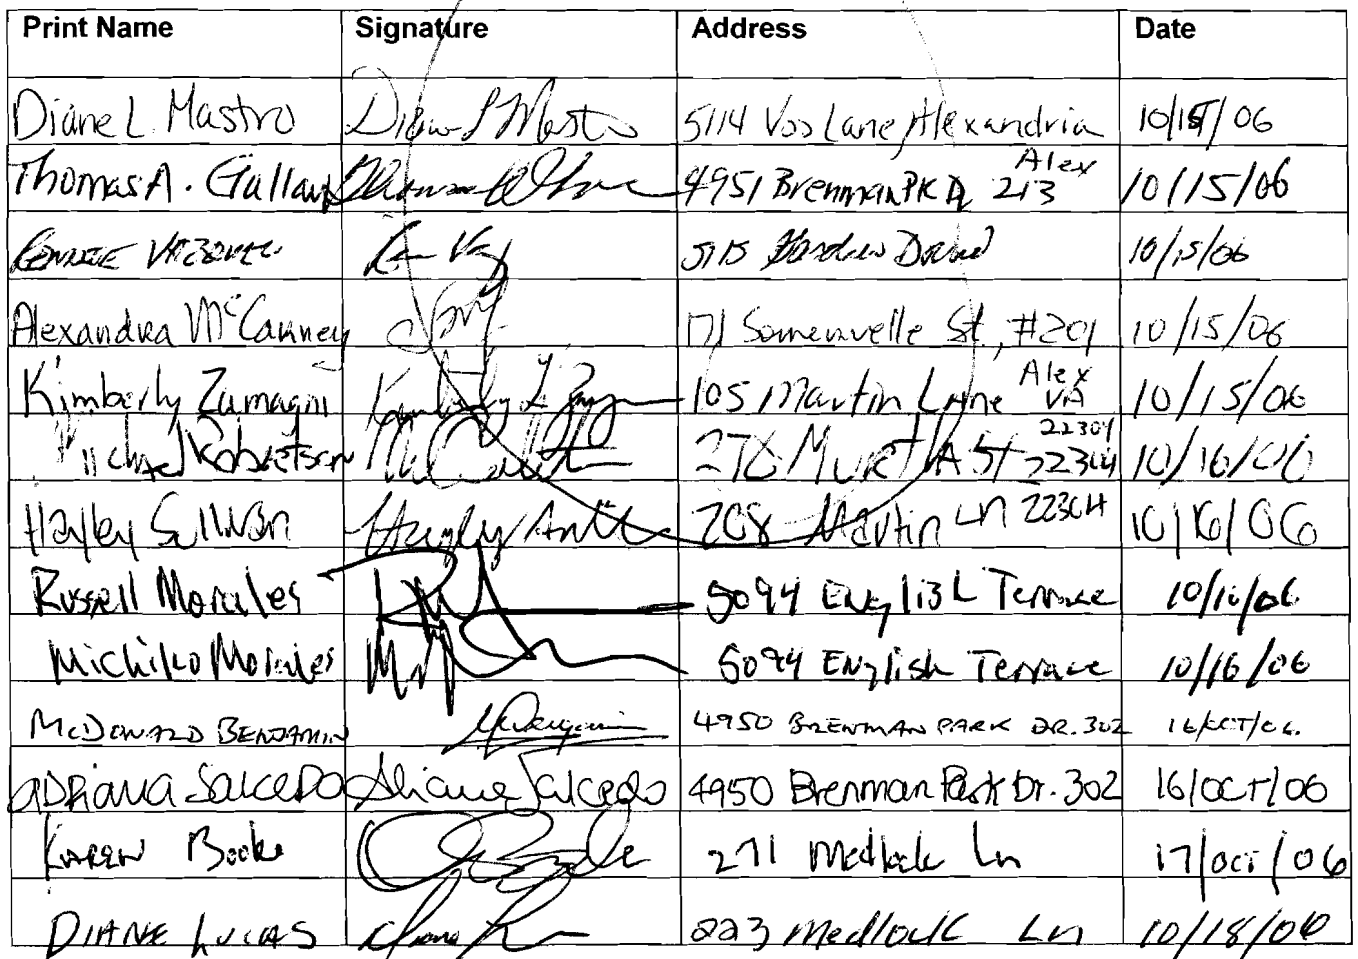 Print Name Signature Address Date
Diane L. Mastro Diane L Mastro 5114 Vos Lane, Alexandria 10/15/06
Thomas A. 4951 Brenman PK D 213 Alex 10/15/06
5115 10/15/06
Alexandra McCanney 171 Somervelle St., #201 10/15/06
Kimberly Zamagni Kimberly L 105 Martin Lane Alex VA 22304 10/15/06
Michael Robertson ST 22304 10/16/06
Hayley Sullivan Hayley 208 Martin Ln 22304 10/16/06
Russell Morales 5094 English Terrace 10/16/06
Michiko Morales 5094 English Terrace 10/16/06
McDONALD BENJAMIN 4950 BRENMAN PARK DR. 302 16/OCT/06.
ADRiana SalceDO Adriana Salcedo 4950 Brenman Park Dr. 302 16/OCT/06
KAREN Booke 271 Medlock Ln 17/Oct/06
DIANE LUCAS Diane 223 Medlock Ln 10/18/06